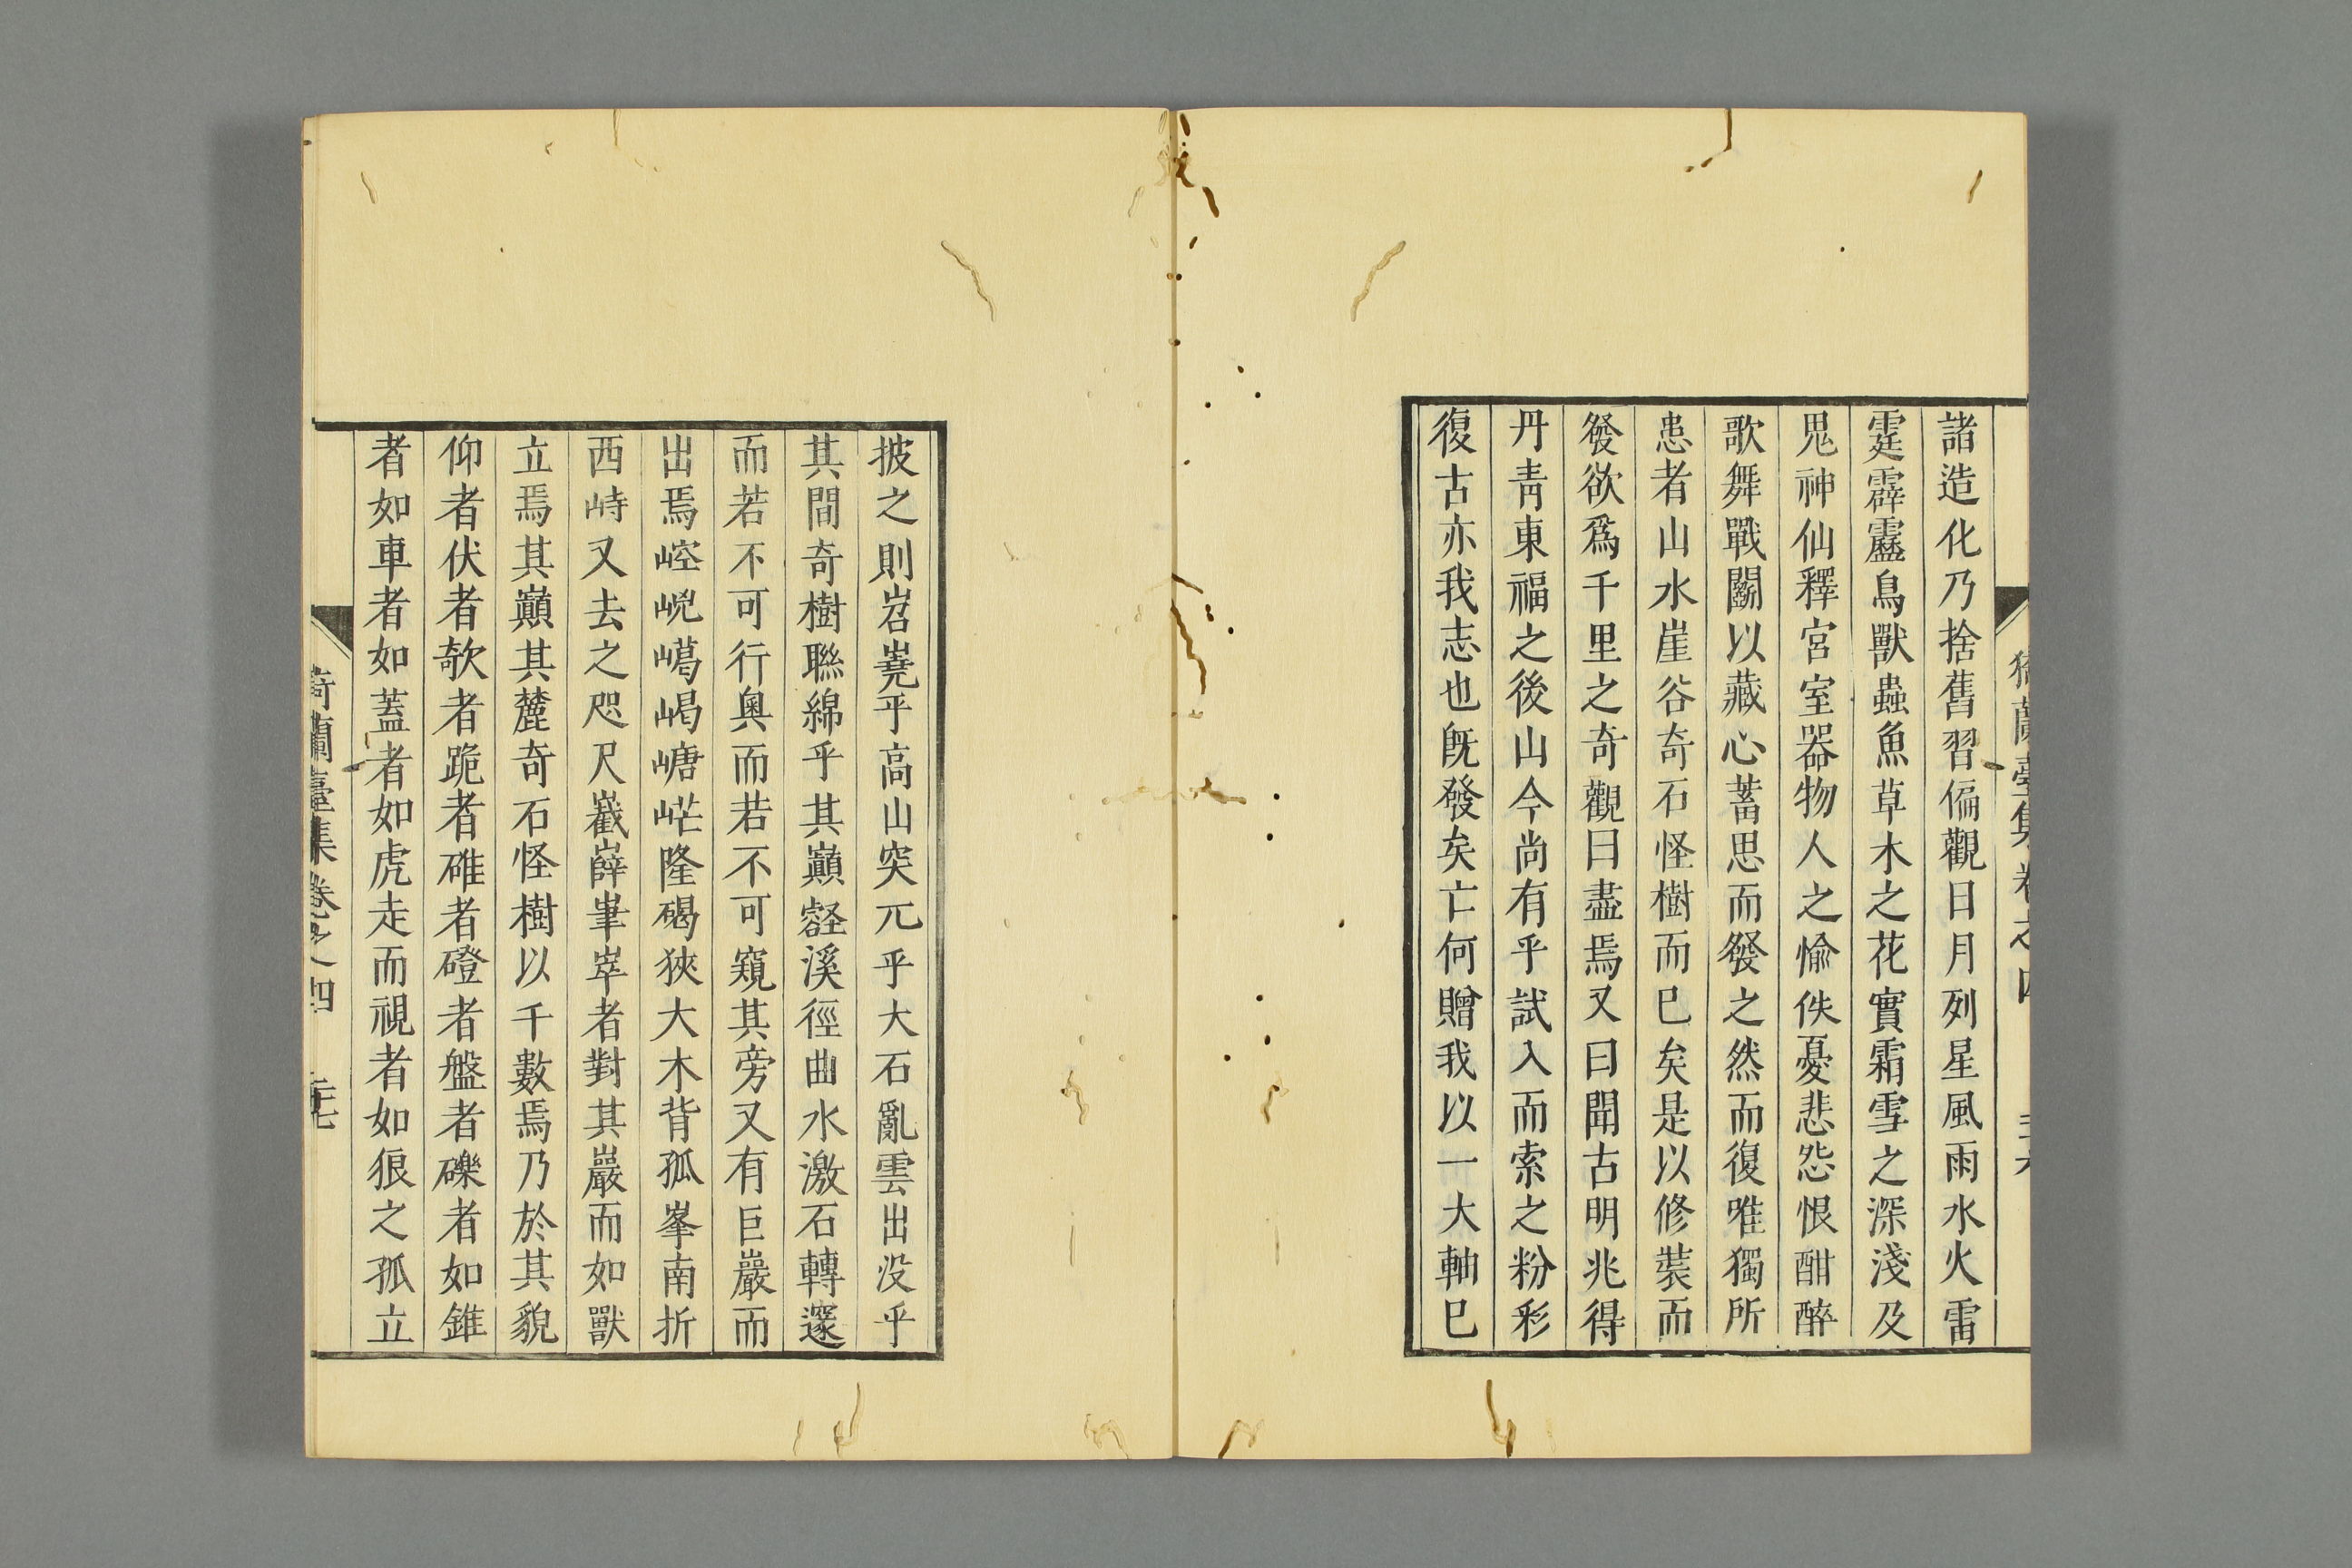 諸造化乃捨舊習偏觀日月列星風雨水火雷
霆霹靂鳥獸蟲魚草木之花實霜雪之深淺及
鬼神仙釋宮室器物人之愉佚憂悲怨恨酣醉
歌舞戰鬭以藏心蓄思而發之然而復唯獨所
患者山水崖谷奇石怪樹而已矣是以修裝而
發欲爲千里之奇觀曰盡焉又曰聞古明兆得
丹青東福之後山今尚有乎試入而索之粉彩
復古亦我志也既發矣亡何贈我以一大軸已
猗蘭臺集卷之四
披之則岧嶤乎高山突兀乎大石亂雲出没乎
其間奇樹聯綿乎其巔壑溪徑曲水激石轉邃
而若不可行奧而若不可窺其旁又有巨巖而
出焉崆㟴嶱嵑嵣㟐隆碣狹大木背孤峯南折
西峙又去之咫尺嶻嶭崒者對其巖而如獸
立焉其巔其麓奇石怪樹以千數焉乃於其貌
仰者伏者欹者跪者碓者磴者盤者礫者如錐
者如車者如蓋者如虎走而視者如狼之孤立
猗蘭臺集卷之四 二十七